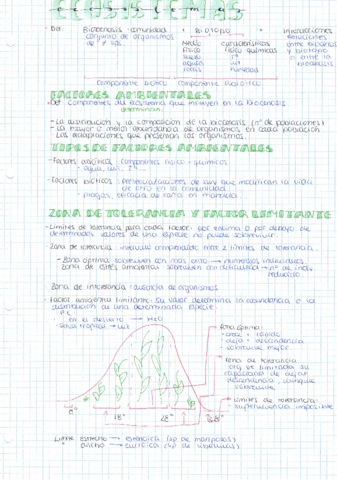 ECOSISTEMAS
- Def: Biocenosis: comunidad + Biotopo + interacciones
conjunto de organismos
de ≠ sps.
medio
físico
características
físico químicas
relaciones
entre biocenosis
y biotopo
o entre la
biocenosis
humedad
componente biótico componente abiótico
FACTORES AMBIENTALES
- Def: componentes del ecosistema que influyen en la biocenosis
determinan:
- La distribución y la composición de la biocenosis (nº de poblaciones)
- La mayor o menor abundancia de organismos en cada población
- Las adaptaciones que presentan los organismos.
TIPOS DE FACTORES AMBIENTALES
- Factores abióticos: componentes físico-químicos
- agua, luz, Tª...
- Factores bióticos: que modifican la vida
de otro en la comunidad
- plagas, eficacia de caza en manada
ZONA DE TOLERANCIA Y FACTOR LIMITANTE
- Límites de tolerancia para cada factor: por encima o por debajo de
determinados valores de una especie no puede sobrevivir.
- Zona de tolerancia: intervalo comprendido entre 2 límites de tolerancia.
- Zona óptima: sobreviven con más éxito → numerosos individuos
- Zona de estrés: sobreviven con dificultad → nº de inds.
reducido
- Zona de intolerancia: ausencia de organismos.
- Factor limitante: su valor determina la abundancia o la
distribución de una determinada especie.
- P.E.
- en el desierto → H2O
- selva tropical → luz
Zona óptima:
- crece + rápido
- deja + descendencia
- sobrevive mejor
Zona de tolerancia:
org. es limitada su
capacidad de dejar
descendencia, aunque
sobrevive
Límites de tolerancia:
- supervivencia imposible
8º 18° 28° 38°
Límite estrecho → estenoica (sp de mariposas)
" ancho → eurioica (sp de